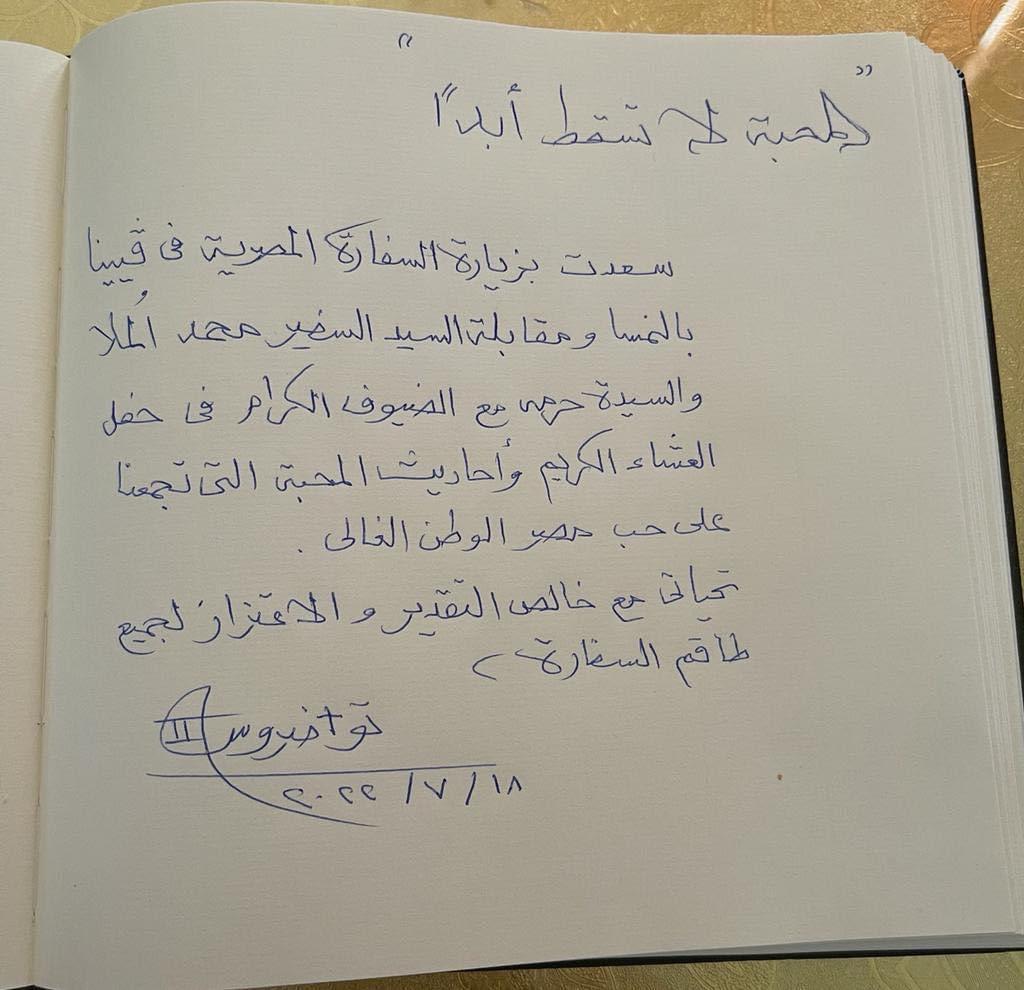 "المحبة لا تسقط أبدًا"
سعدت بزيارة السفارة المصرية فى ڤيينا
بالنمسا ومقابلة السيد السفير محمد المُلا
والسيدة حرمه مع الضيوف الكرام فى حفل
العشاء الكريم وأحاديث المحبة التى تجمعنا
على حب مصر الوطن الغالى .
تحياتى مع خالص التقدير والاعتزاز لجميع
طاقم السفارة
تواضروس II
١٨/٧/٢٠٢٢